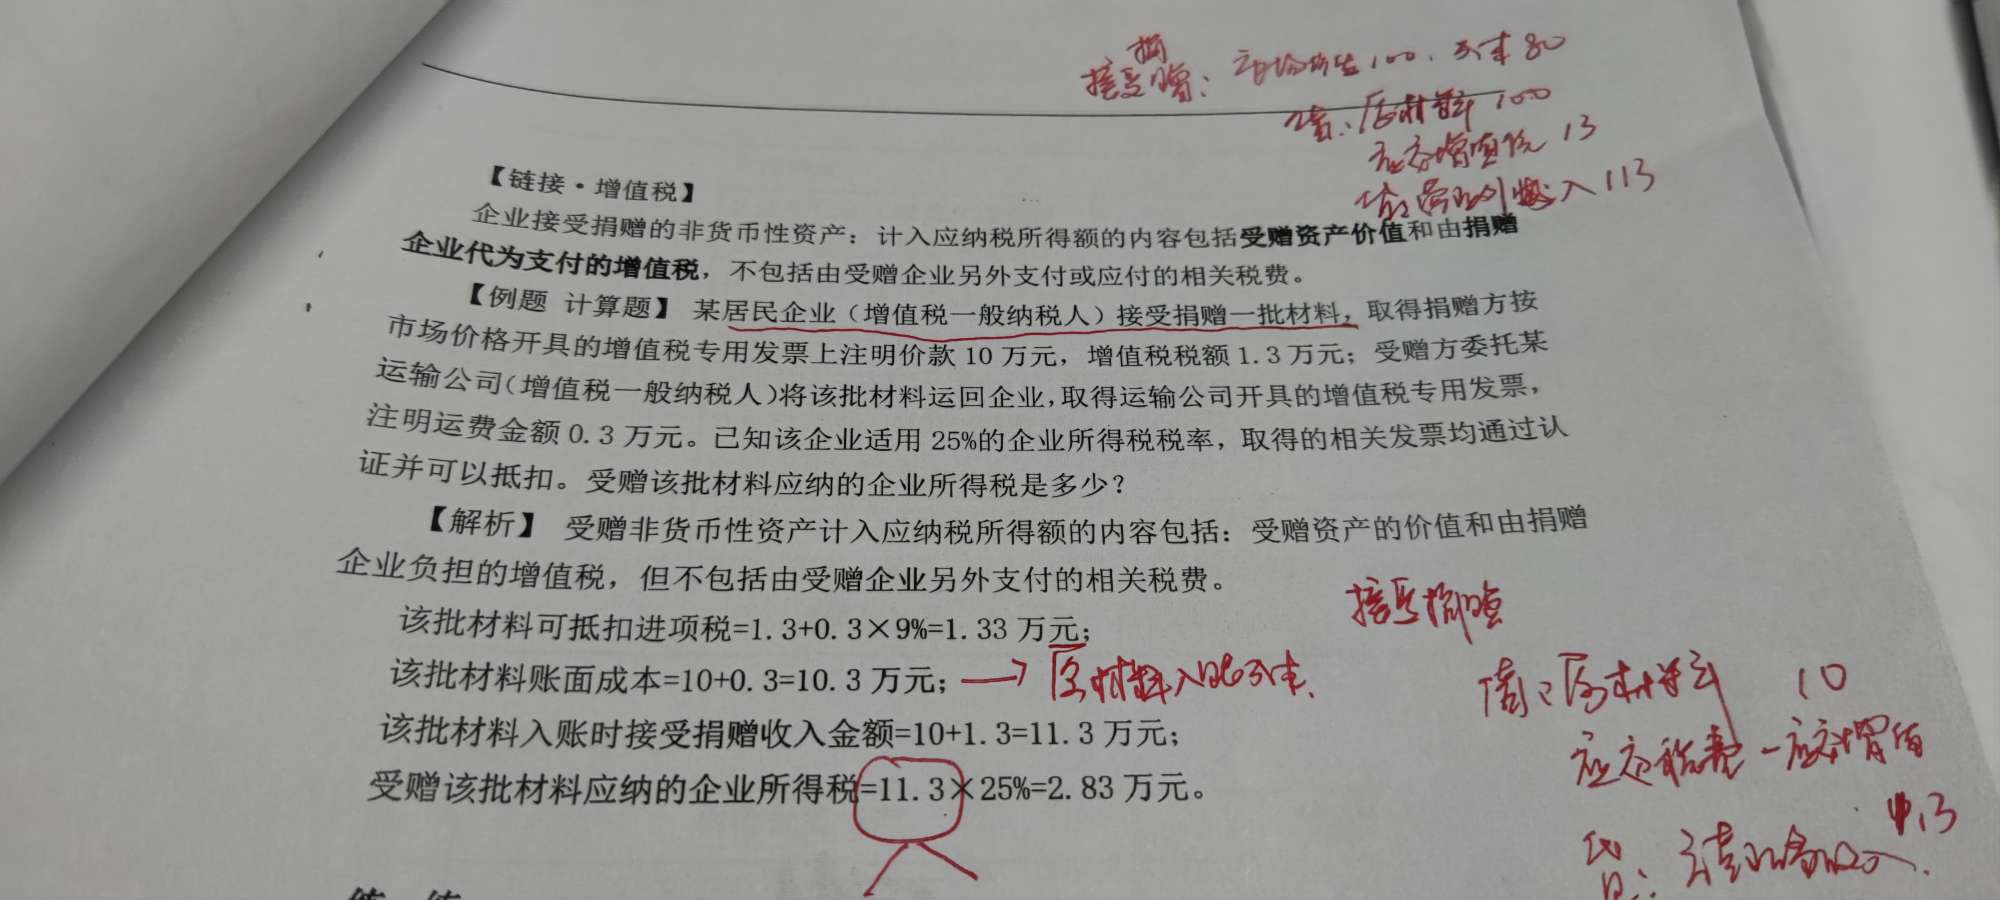 接受捐赠：市场价值100，成本80
借：原材料 100
应交增值税 13
贷：营业外收入 113
【链接·增值税】
企业接受捐赠的非货币性资产：计入应纳税所得额的内容包括受赠资产价值和由捐赠
企业代为支付的增值税，不包括由受赠企业另外支付或应付的相关税费。
【例题 计算题】 某居民企业（增值税一般纳税人）接受捐赠一批材料，取得捐赠方按
市场价格开具的增值税专用发票上注明价款 10 万元，增值税税额 1.3 万元；受赠方委托某
运输公司(增值税一般纳税人)将该批材料运回企业,取得运输公司开具的增值税专用发票，
注明运费金额 0.3 万元。已知该企业适用 25%的企业所得税税率，取得的相关发票均通过认
证并可以抵扣。受赠该批材料应纳的企业所得税是多少？
【解析】 受赠非货币性资产计入应纳税所得额的内容包括：受赠资产的价值和由捐赠
企业负担的增值税，但不包括由受赠企业另外支付的相关税费。
该批材料可抵扣进项税=1.3+0.3×9%=1.33 万元；
该批材料账面成本=10+0.3=10.3 万元；→原材料入账成本.
该批材料入账时接受捐赠收入金额=10+1.3=11.3 万元；
受赠该批材料应纳的企业所得税=11.3×25%=2.83 万元。
接受捐赠
借：原材料 10
应交税费－应交增值
1.3
贷：